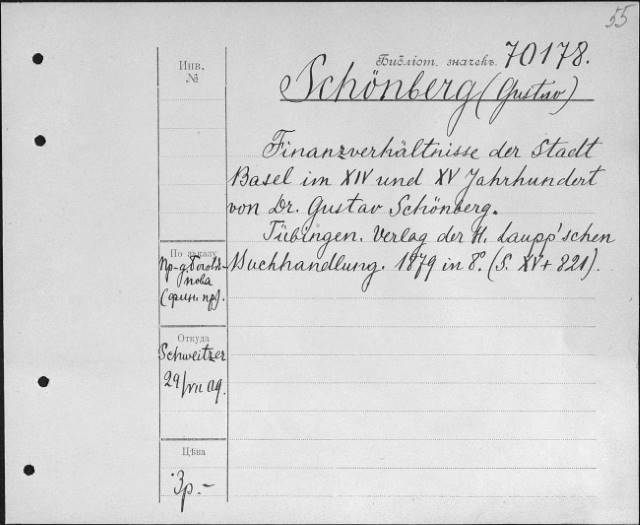 55
Библіот. значекъ 70178.
Schönberg (Gustav)
Finanzverhältnisse der Stadt
Basel im XIV und XV Jahrhundert
von Dr. Gustav Schönberg.
Tübingen. Verlag der H. Laupp'schen
Buchhandlung. 1879 in 8. (S. XV + 821).
Инв.
№
По
Пр-д.
нова
(фин. пр).
Откуда
Schweitzer
29/VII 09.
Цѣна
3р.-